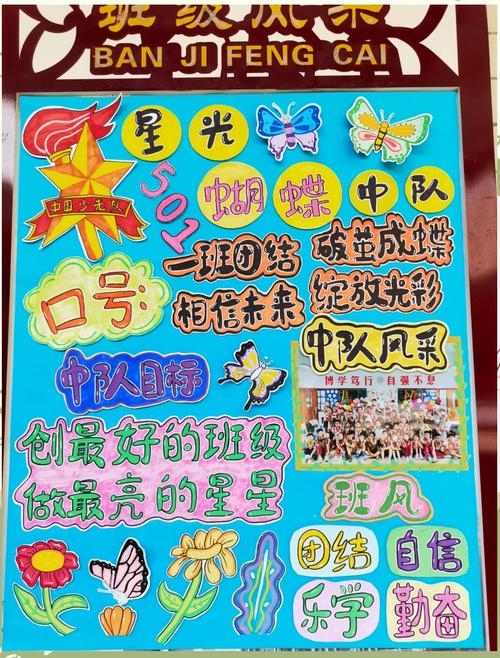 班级风采
BAN JI FENG CAI
星光
中国少先队
501
蝴蝶中队
口号:
一班团结 破茧成蝶
相信未来 绽放光彩
中队风采
博学笃行 自强不息
中队目标
创最好的班级
做最亮的星星
班风
团结 自信
乐学 勤奋